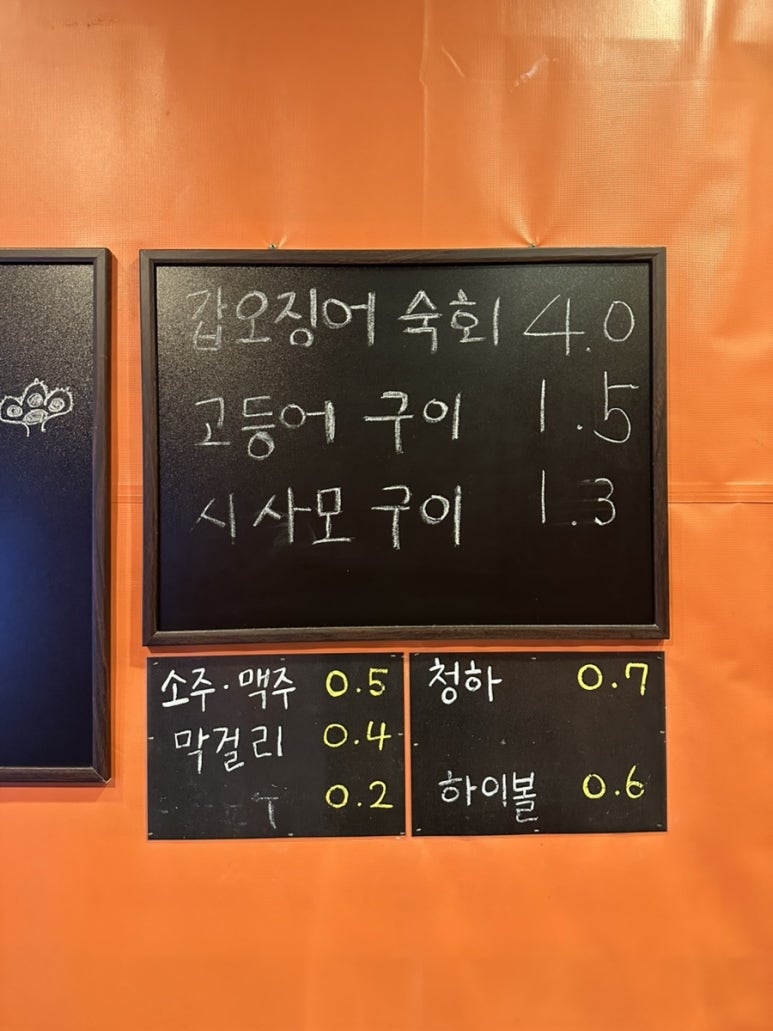 갑오징어 숙회 4.0
고등어 구이 1.5
시사모 구이 1.3
소주·맥주 0.5
막걸리 0.4
0.2
청하 0.7
하이볼 0.6